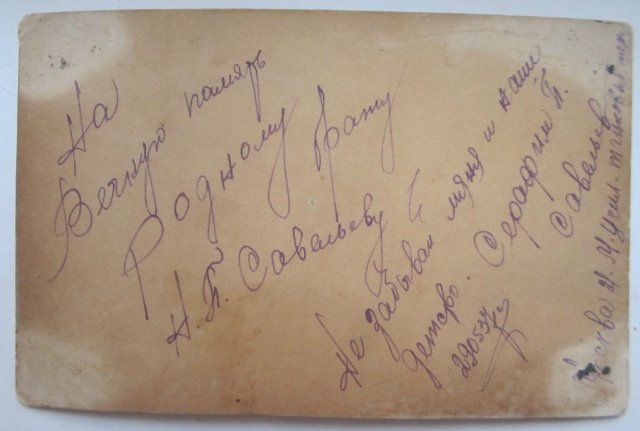 На
Вечную память
Родному Брату
Н. П. Савельеву
Не забывай меня и наше
детство. Серафим П.
Савельев
Москва